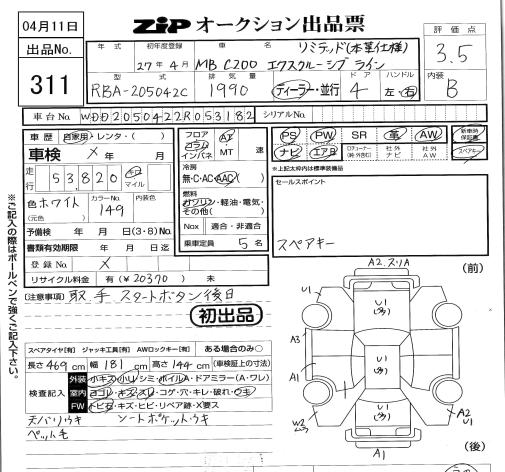 04月11日
ZIP オークション出品票
出品No.
311
評価点
3.5
内装
B
年式 初年度登録 車名 リミテッド(本革仕様)
27年4月 MB C200 エクスクルーシブ ライン
型式 排気量 ドア ハンドル
RBA-205042C 1990 ディーラー・並行 4 左・右
車台No. WDD2050422R053182 シリアルNo.
車歴 自家用・レンタ・( )
車検 X 年 月
走行 53,820 キロ マイル
色 ホワイト カラーNo. 149 内装色
(元色)
予備検 年 月 日(3・8)No.
書類有効期限 年 月 日迄
登録No. X
リサイクル料金 有(¥20370) 未
フロア コラム インパネ AT・MT 速
冷房
無・C・AC・AAC( )
燃料
ガソリン・軽油・電気・その他( )
Nox 適合・非適合
乗車定員 5名
PS PW SR 革 AW 新車時保証書
ナビ エアB 社外ナビ 社外AW スペアキー
※上記太枠内は標準装備品
セールスポイント
スペアキー
※ご記入の際はボールペンで強くご記入下さい。
注意事項 取、手 スタートボタン後日
初出品
スペアタイヤ[有] ジャッキ工具[有] AWロックキー[有] ある場合のみ○
長さ469cm 幅181cm 高さ144cm (車検証上の寸法)
検査記入
外装 小キズ・小U・シミ・ボイルA・ドアミラー(A・ワレ)
室内 ヨゴレ・キズ・スレ・コゲ・穴・キレ・破れ・ウキ
FW トビ石・キズ・ヒビ・リペア跡・X要ス
天バリウキ シートポケットウキ
ペット毛
A2.スリA
(前)
U1
U1
(多)
A3
U1
(多)
A1
U1
(多)
W2
A2
U1
A1
(後)